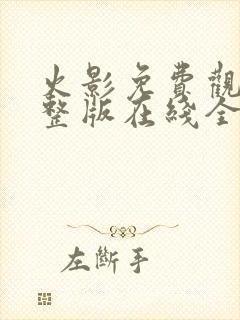 火影免費觀
整版在綫全
左斷手